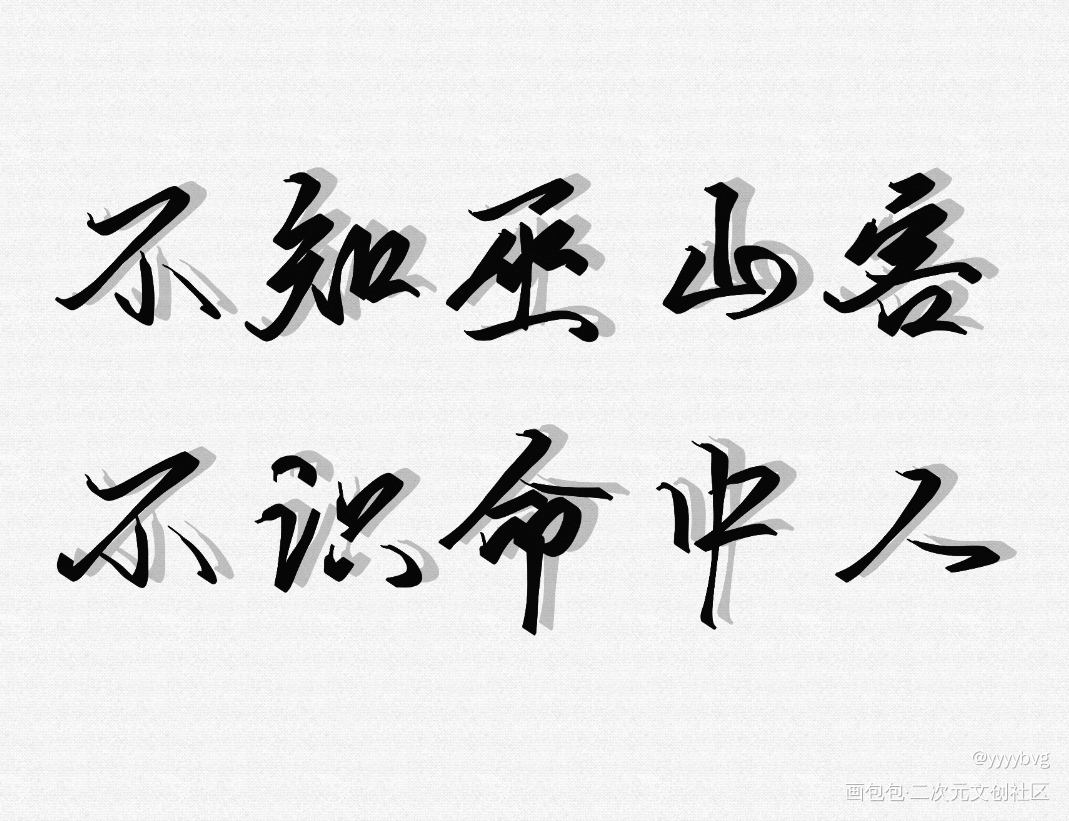 不知巫山客
不识命中人
@yyyybvg
画包包·二次元文创社区